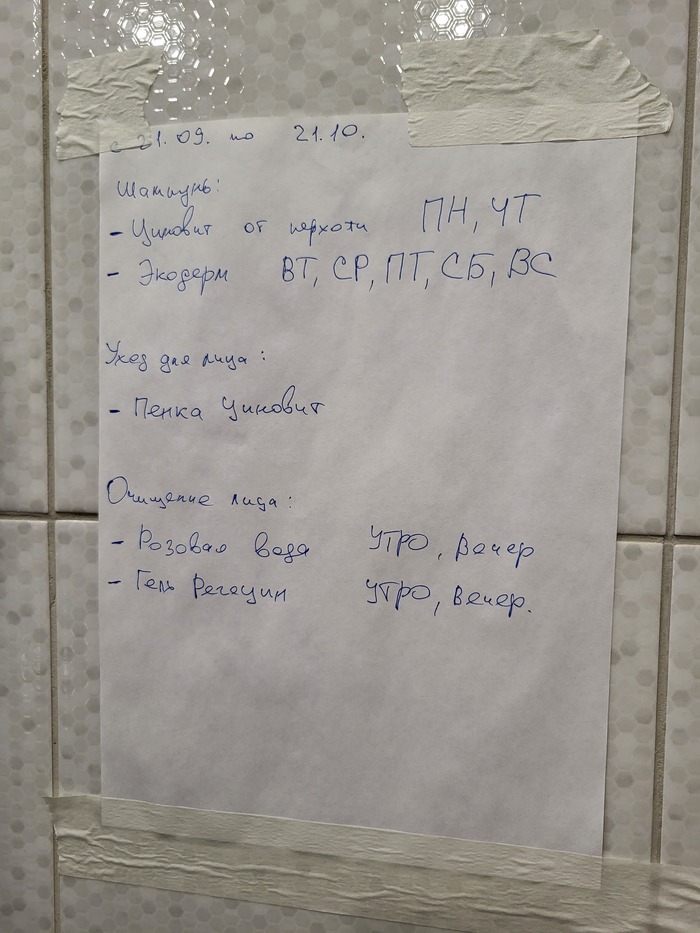 с 21.09. по 21.10.
Шампунь:
- Циновит от перхоти ПН, ЧТ
- Экодерм ВТ, СР, ПТ, СБ, ВС
Уход для лица:
- Пенка Циновит
Очищение лица:
- Розовая вода УТРО, Вечер
- Гель Регецин УТРО, Вечер.